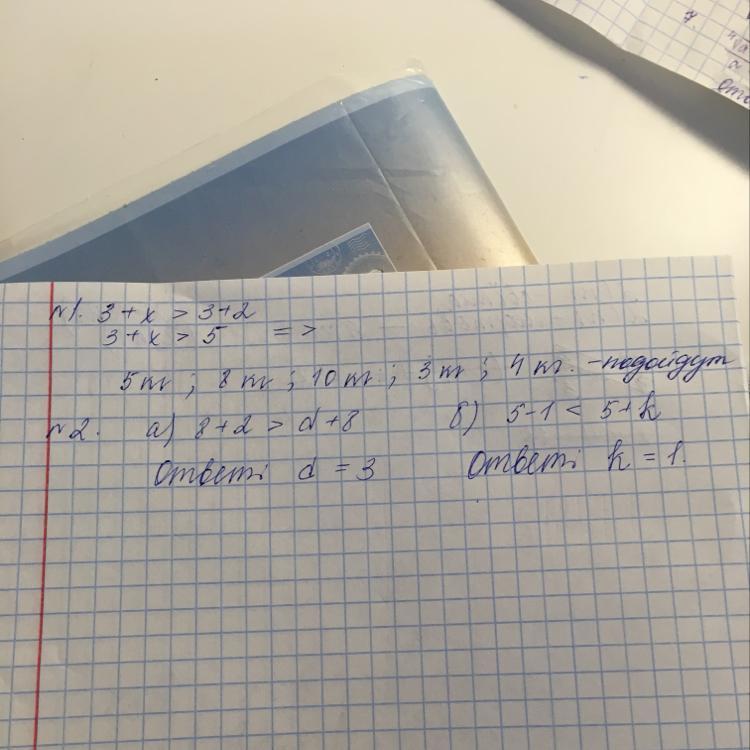 7.
№1. 3 + x > 3+2
3 + x > 5 =>
5 кг ; 8 кг ; 10 кг ; 3 кг ; 4 кг. - подойдут
№2. а) 8+2 > d+8 б) 5-1 < 5+k
Ответ: d = 3 Ответ: k = 1.